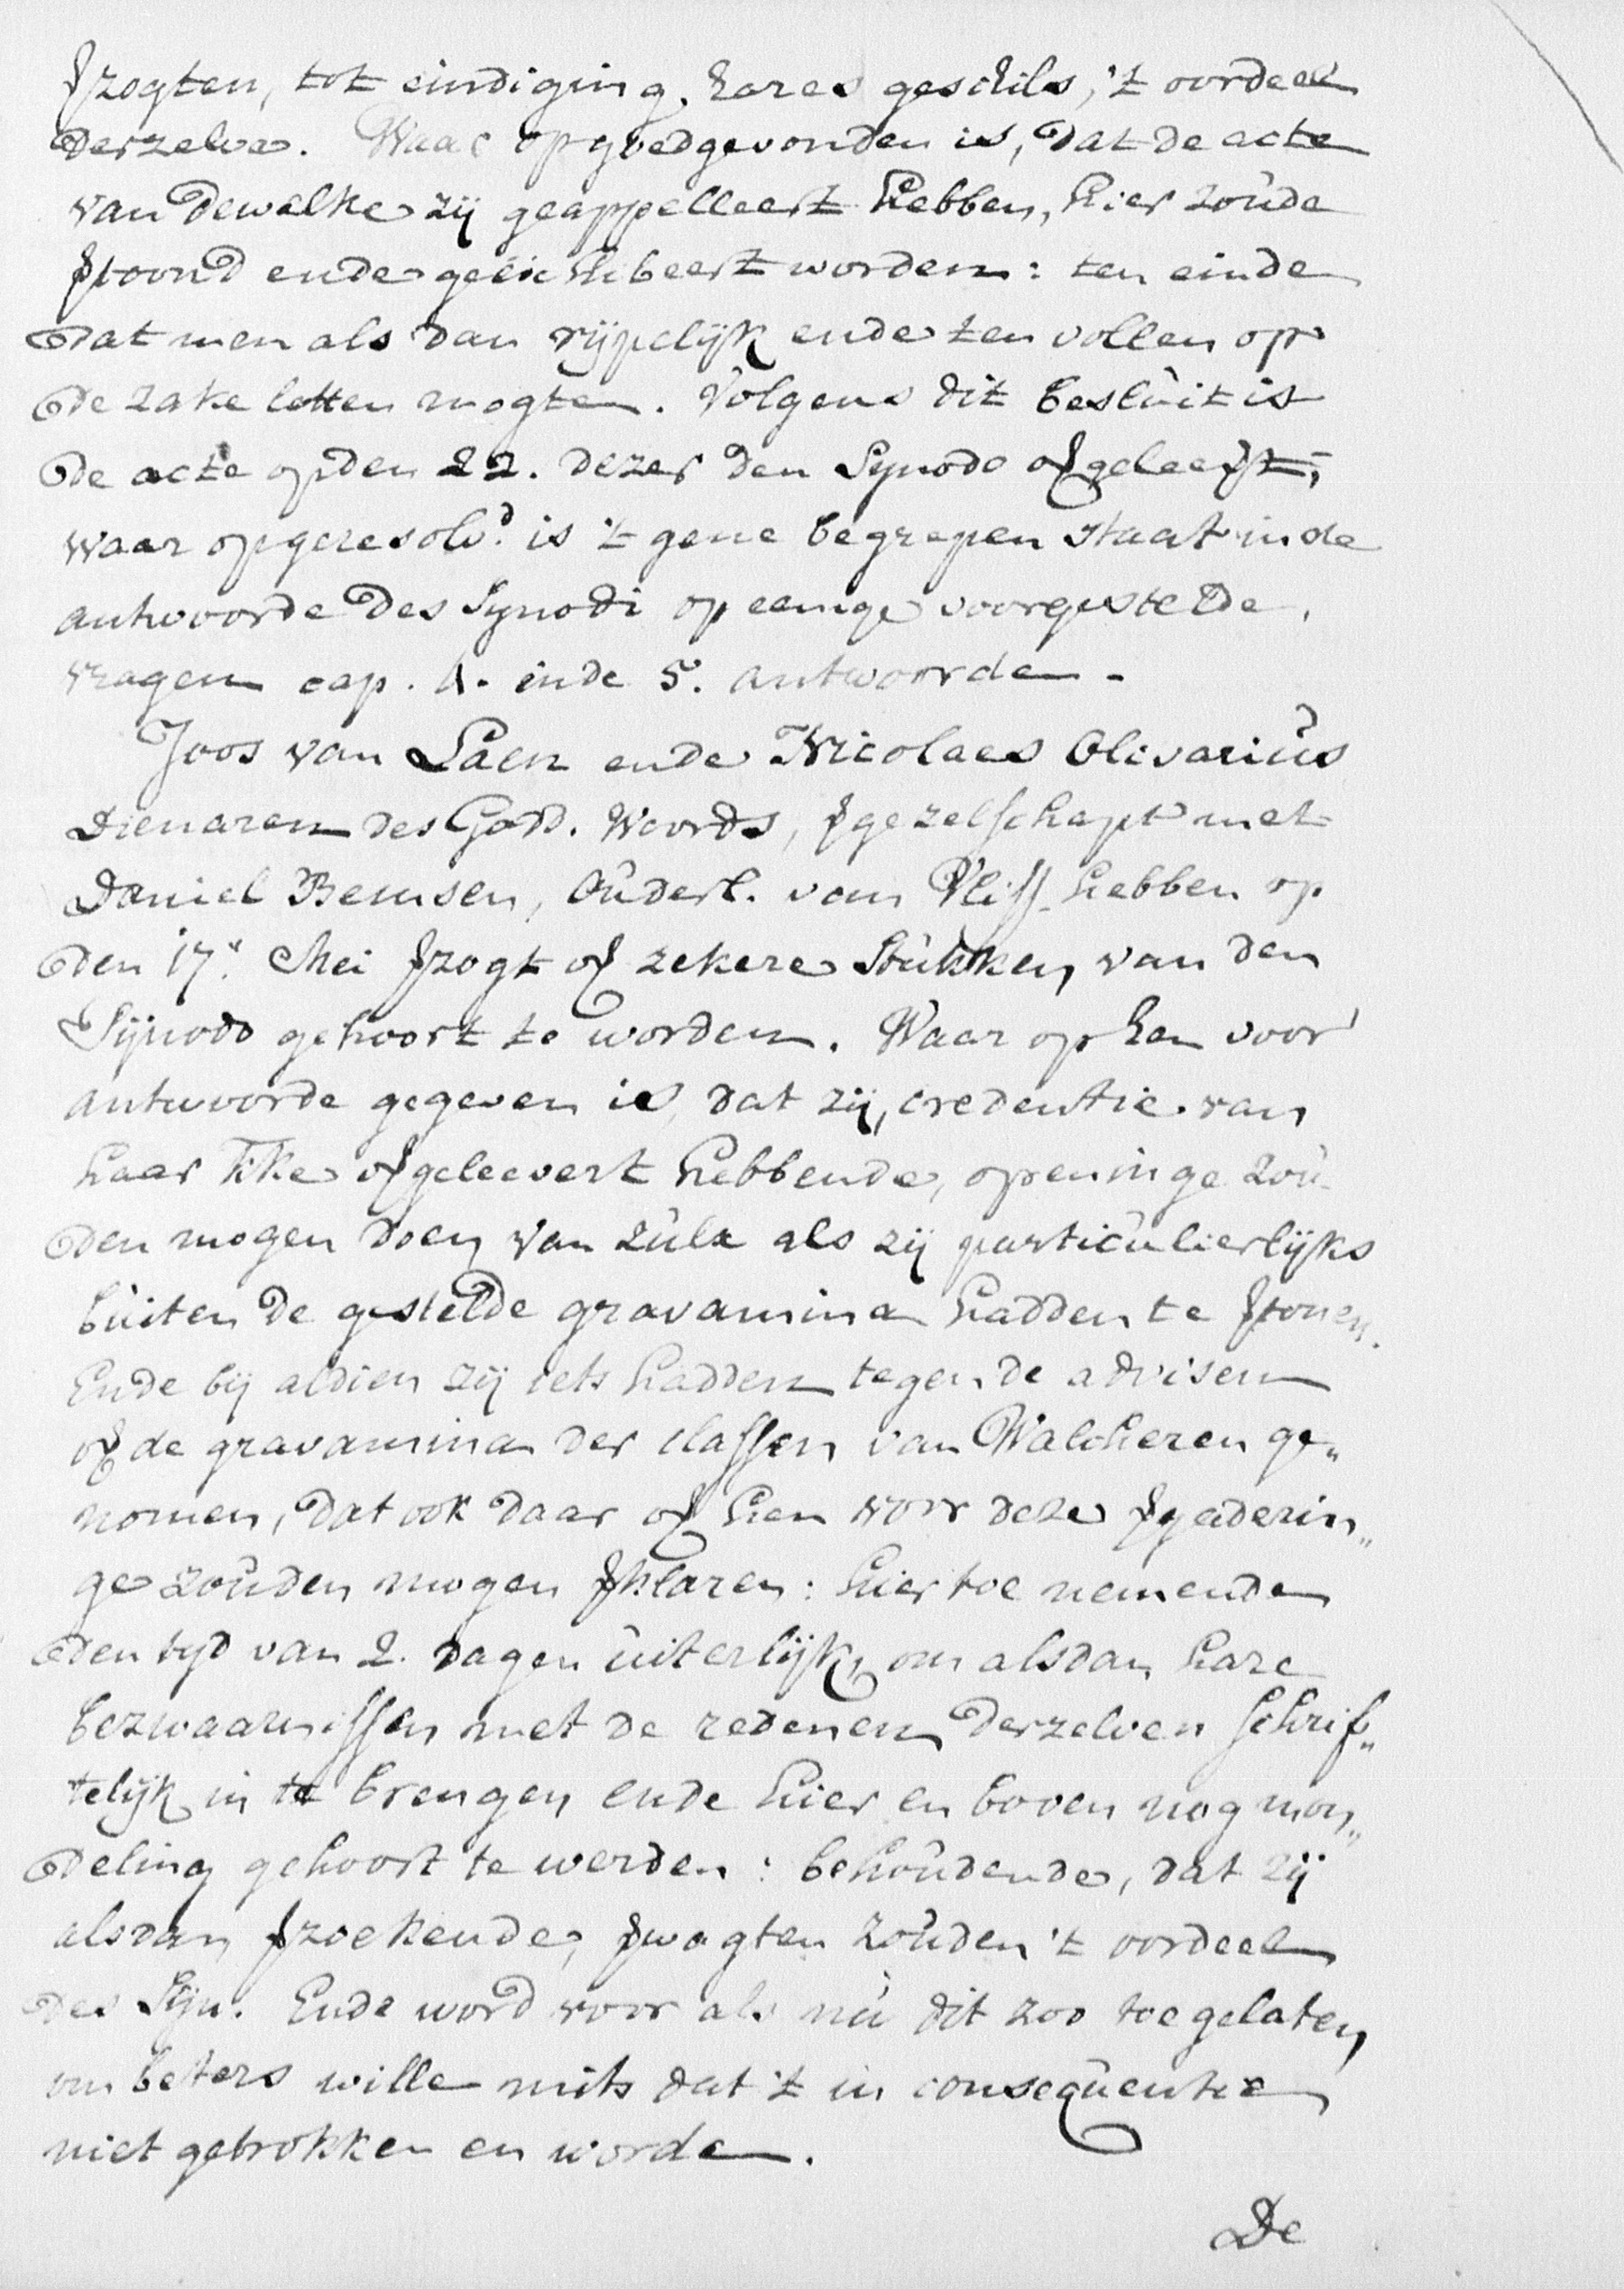 ꝟzogten, tot eindiging hares geschils, 't oordeel
derzelve. Waar op goedgevonden is, dat de acte
van dewelke zij geappelleert hebben, hier zoude
ꝟtoond ende geëxhibeert worden: ten einde
dat men als dan rijpelijk ende ten vollen op
de zake letten mogten. Volgens dit besluit is
de acte op den 22. dezer den Synodo ofgeleest,
waar op geresolvd. is 't gene begrepen staat in de
antwoorde des Synodi op eenige voorgestelde
vragen cap. 1. in de 5. antwoorde.
Joos van Laen ende Nicolaes Olivarius
Dienaren des Godd. Woords, ꝟgezelschapt met
Daniel Bemsen, Ouderl. van Vliss. hebben op
den 17n. Mei ꝟzogt of zekere stukken van den
Synodo gehoort te worden. Waar op hen voor
antwoorde gegeven is, dat zij, credentie van
haar Kke ofgeleevert hebbende, openinge zou-
den mogen doen van zulx als zij particulierlijks
buiten de gestelde gravamina hadden te ꝟtonen.
Ende bij aldien zij iets hadden tegen de advisen
of de gravamina der classen van Walcheren ge„
nomen, dat ook daar of hen voor deze ꝟgaderin„
ge zouden mogen ꝟklaren: hier toe nemende
den tijd van 2. dagen uiterlijk, om alsdan hare
bezwaarnissen met de redenen derzelven schrif„
telijk in te brengen ende hier en boven nog mon„
deling gehoort te werden: behoudende, dat zij
alsdan ꝟzoekende, ꝟwagten zouden 't oordeel
des Syn. Ende word voor als nu dit zoo toegelaten
om beters wille mits dat 't in consequentie
niet getrokken en worde.
De